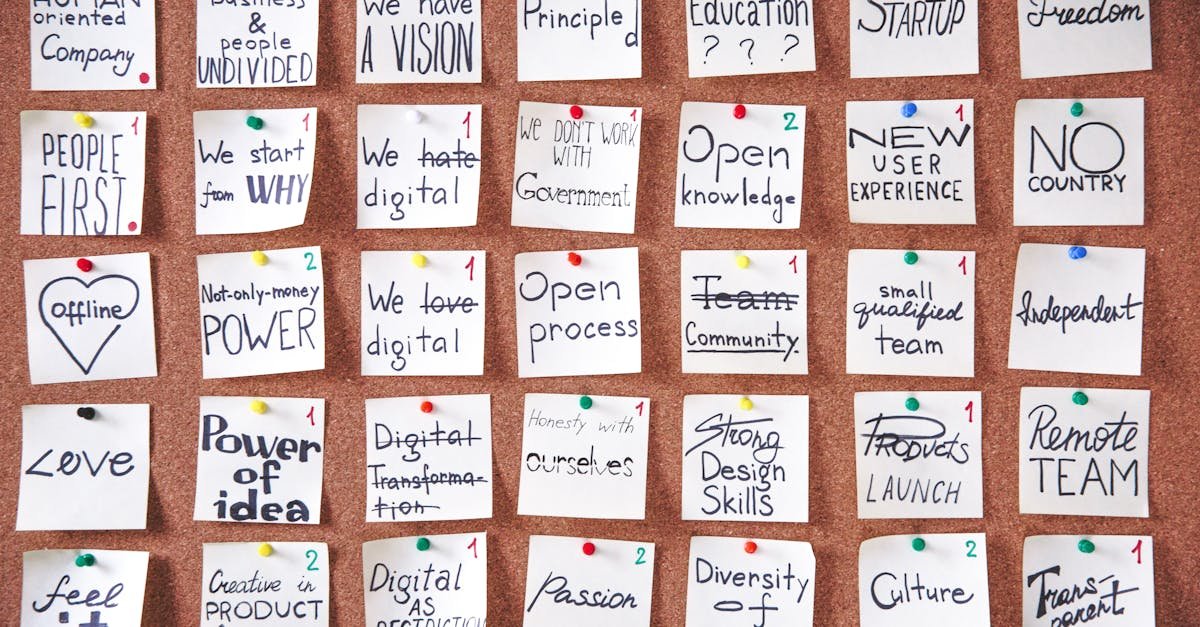 HUMAN
oriented
Company
Business
&
people
UNDIVIDED
We have
A VISION
Principled
Education
? ? ?
STARTUP
Freedom
1
PEOPLE
FIRST
1
We start
from WHY
1
We hate
digital
1
We DON'T WORK
WITH
Government
2
Open
knowledge
1
NEW
USER
EXPERIENCE
NO
COUNTRY
offline
2
Not-only-money
POWER
1
We love
digital
Open
process
1
Team
Community.
1
small
qualified
team
Independent
Love
1
Power
of
idea
Digital
Transforma-
tion
1
Honesty with
ourselves
Strong
Design
Skills
1
PRODUCTS
LAUNCH
REMOTE
TEAM
feel
it
2
Creative in
PRODUCT
1
Digital
AS
RESTRICTION
2
Passion
Diversity
of
2
Culture
1
Trans-
parent